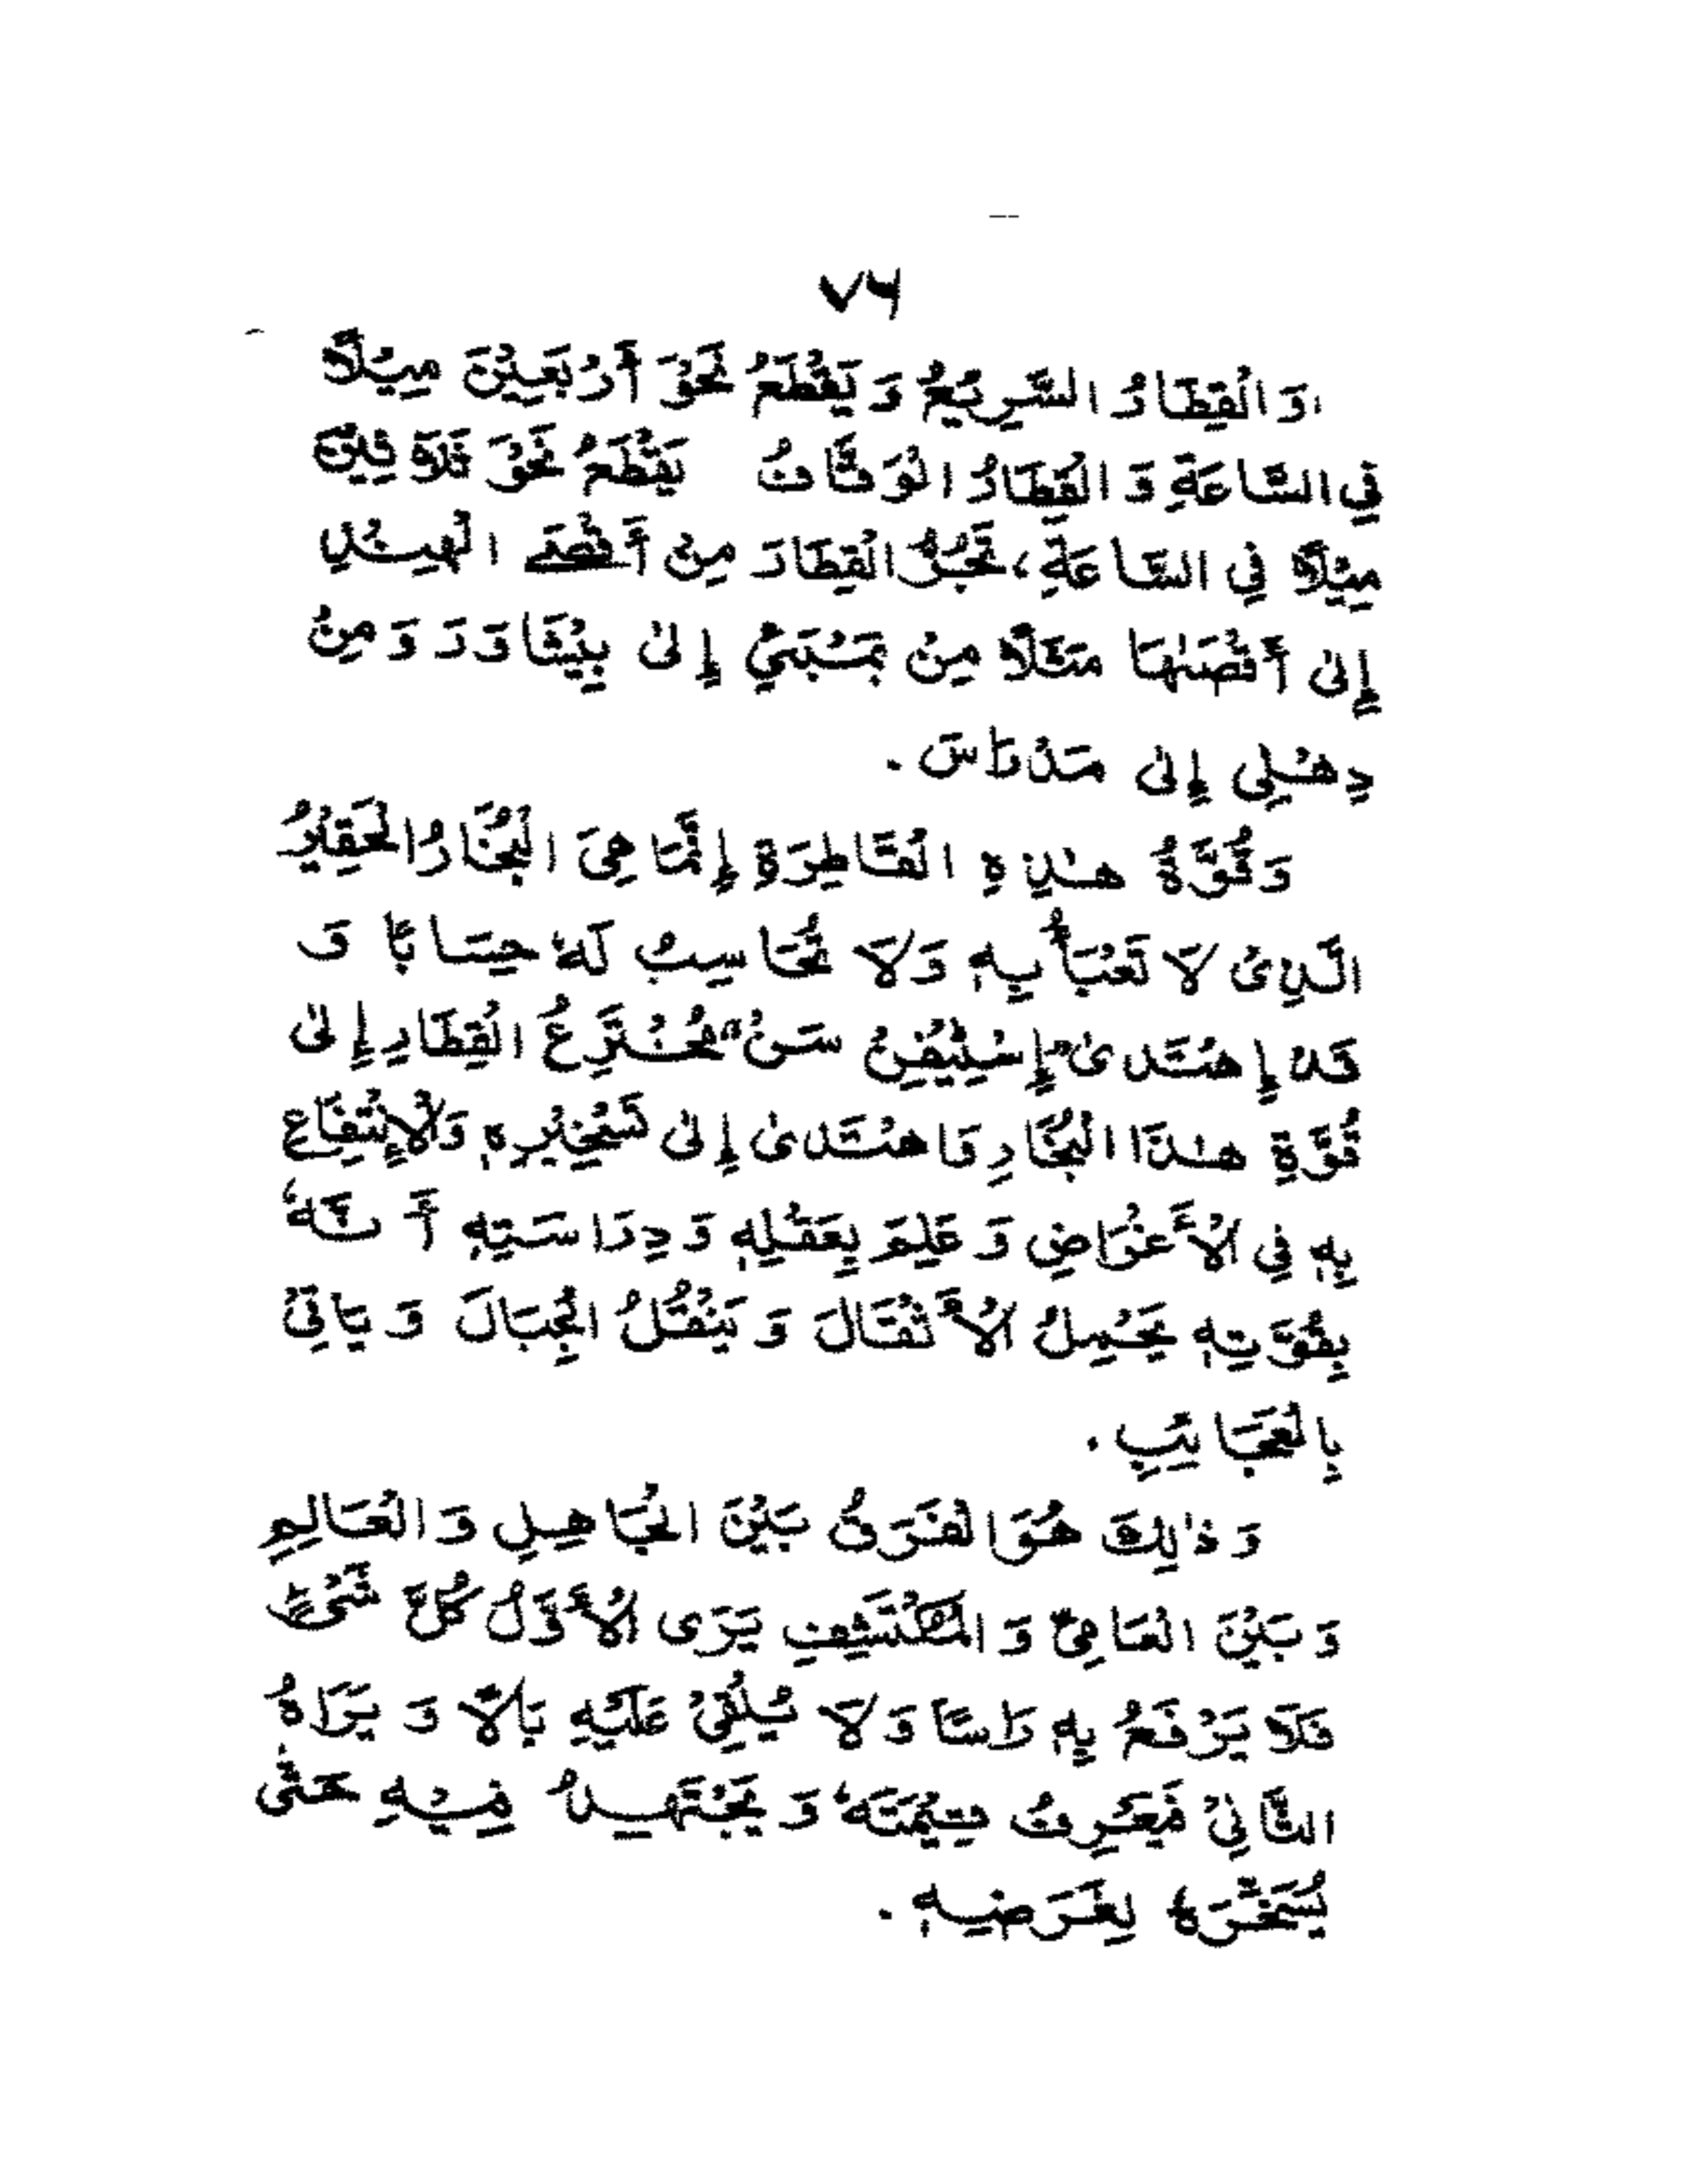 ٧٤
وَالْقِطَارُ السَّرِيْعُ وَ يَقْطَعُ نَحْوَ أَرْبَعِيْنَ مِيْلًا
فِي السَّاعَةِ وَ الْقِطَارُ الْوَقَّافُ يَقْطَعُ نَحْوَ ثَلَاثِيْنَ
مِيْلًا فِي السَّاعَةِ، تَجُرُّ الْقِطَارَ مِنْ أَقْصَى الْهِنْدِ
إِلىٰ أَقْصَاهَا مَثَلًا مِنْ بَمْبَئِيْ إِلىٰ بِيْشَاوَرَ وَ مِنْ
دِهْلِي إِلىٰ مَدْرَاسَ .
وَ قُوَّةُ هٰذِهِ الْقَاطِرَةِ إِنَّمَا هِيَ الْبُخَارُ الْحَقِيْرُ
الَّذِىْ لَا تَعْبَأُ بِهٖ وَلَا تُحَاسِبُ لَهٗ حِسَابًا وَ
قَدْ إِهْتَدىٰ "إِسْتِيْفِنْ سَنْ" مُخْتَرِعُ الْقِطَارِ إِلىٰ
قُوَّةِ هٰذَا الْبُخَارِ فَاهْتَدىٰ إِلىٰ تَسْخِيْرِهٖ وَالْاِنْتِفَاعِ
بِهٖ فِي الْأَغْرَاضِ وَ عَلِمَ بِعَقْلِهٖ وَ دِرَاسَتِهٖ أَنَّهٗ
بِقُوَّتِهٖ يَحْمِلُ الْأَثْقَالَ وَ يَنْقُلُ الْجِبَالَ وَ يَاتِيْ
بِالْعَجَائِبِ .
وَ ذٰلِكَ هُوَ الْفَرَقُ بَيْنَ الْجَاهِلِ وَ الْعَالِمِ
وَ بَيْنَ الْعَامِيِّ وَ الْمُكْتَشِفِ يَرَى الْأَوَّلُ كُلَّ شَيْءٍ
فَلَا يَرْفَعُ بِهٖ رَاسًا وَلَا يُلْقِيْ عَلَيْهِ بَالًا وَ يَرَاهُ
الثَّانِيْ فَيَعْرِفُ قِيْمَتَهٗ وَ يَجْتَهِدُ فِيْهِ حَتّٰى
يُسَخِّرَهٗ لِغَرَضِهٖ .